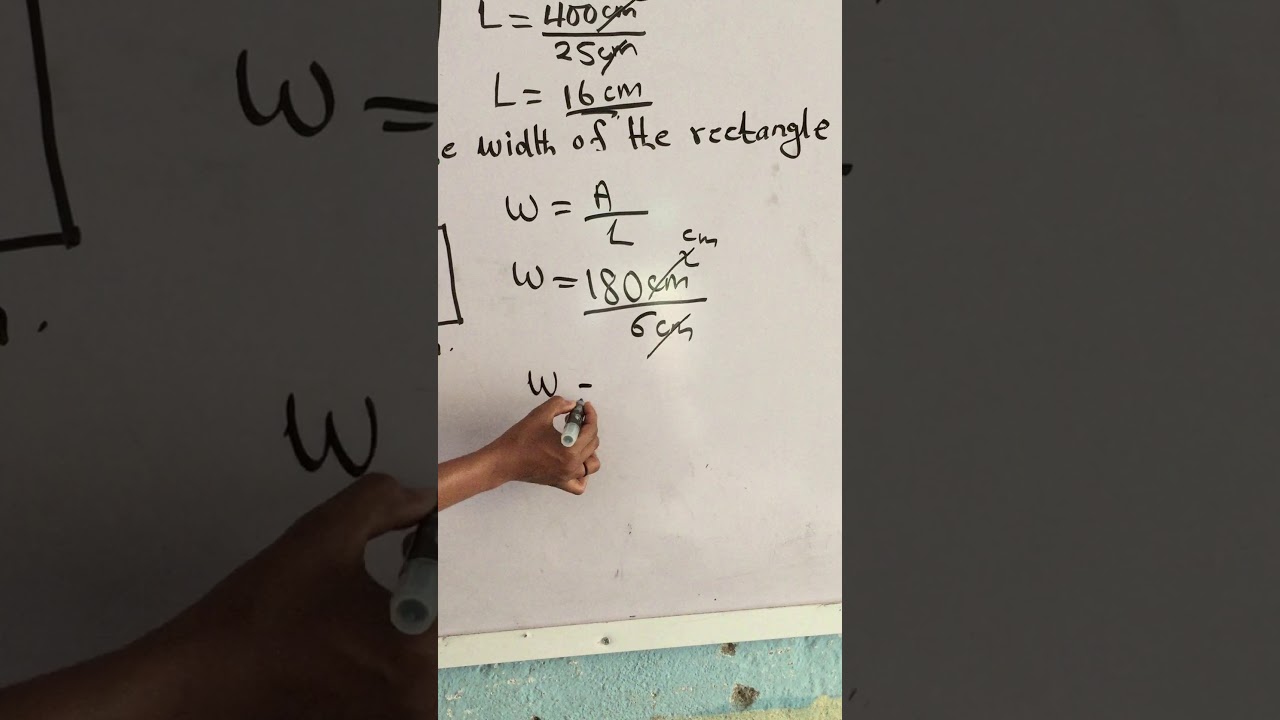 L = 400cm
25cm
L = 16cm
e width of the rectangle
W = A
L
cm
W = 180cm²
6cm
W =